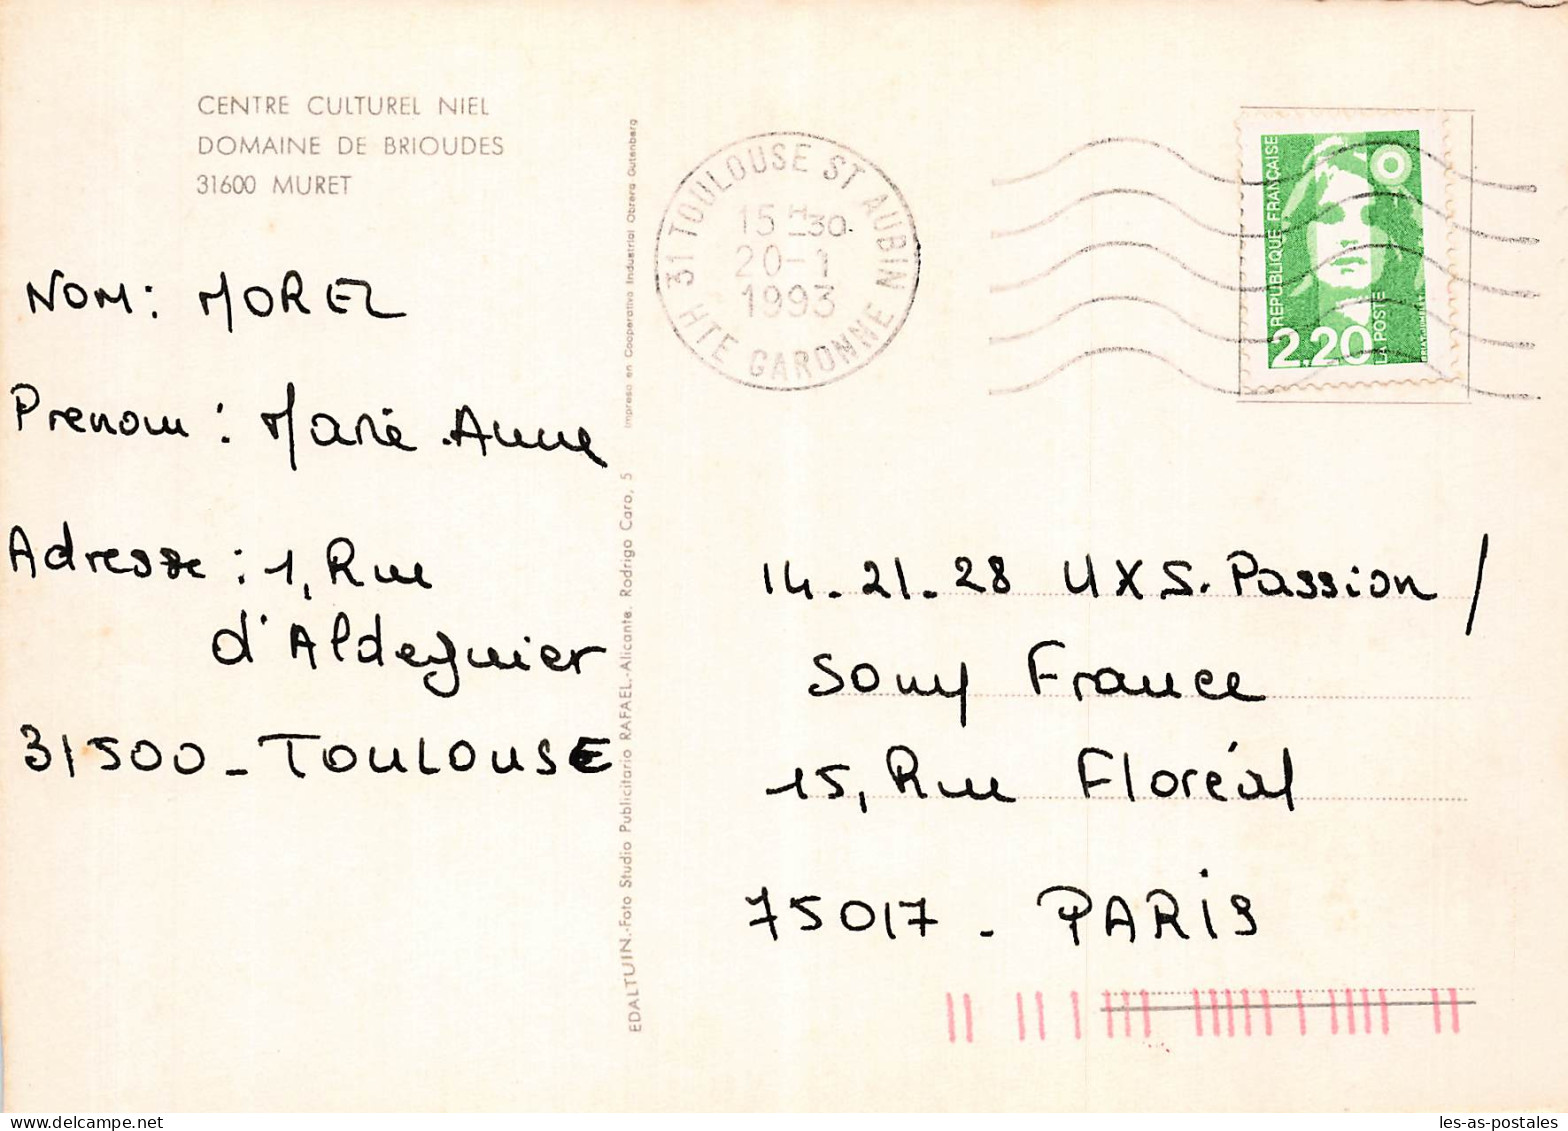 CENTRE CULTUREL NIEL
DOMAINE DE BRIOUDES
31600 MURET
NOM: MOREL
Prenom: Marie-Anne
Adresse: 1, Rue
d'Aldeguier
31500 - TOULOUSE
EDALTUIN.-Foto Studio Publicitario RAFAEL.-Alicante. Rodrigo Caro, 5 Impreso en Cooperativa Industrial Obrera Gutenberg
31 TOULOUSE ST AUBIN
15 H 30
20-1
1993
HTE GARONNE
REPUBLIQUE FRANÇAISE
2,20
LA POSTE
14-21-28 UXS. Passion /
Sony France
15, Rue Floréal
75017 - PARIS
les-as-postales